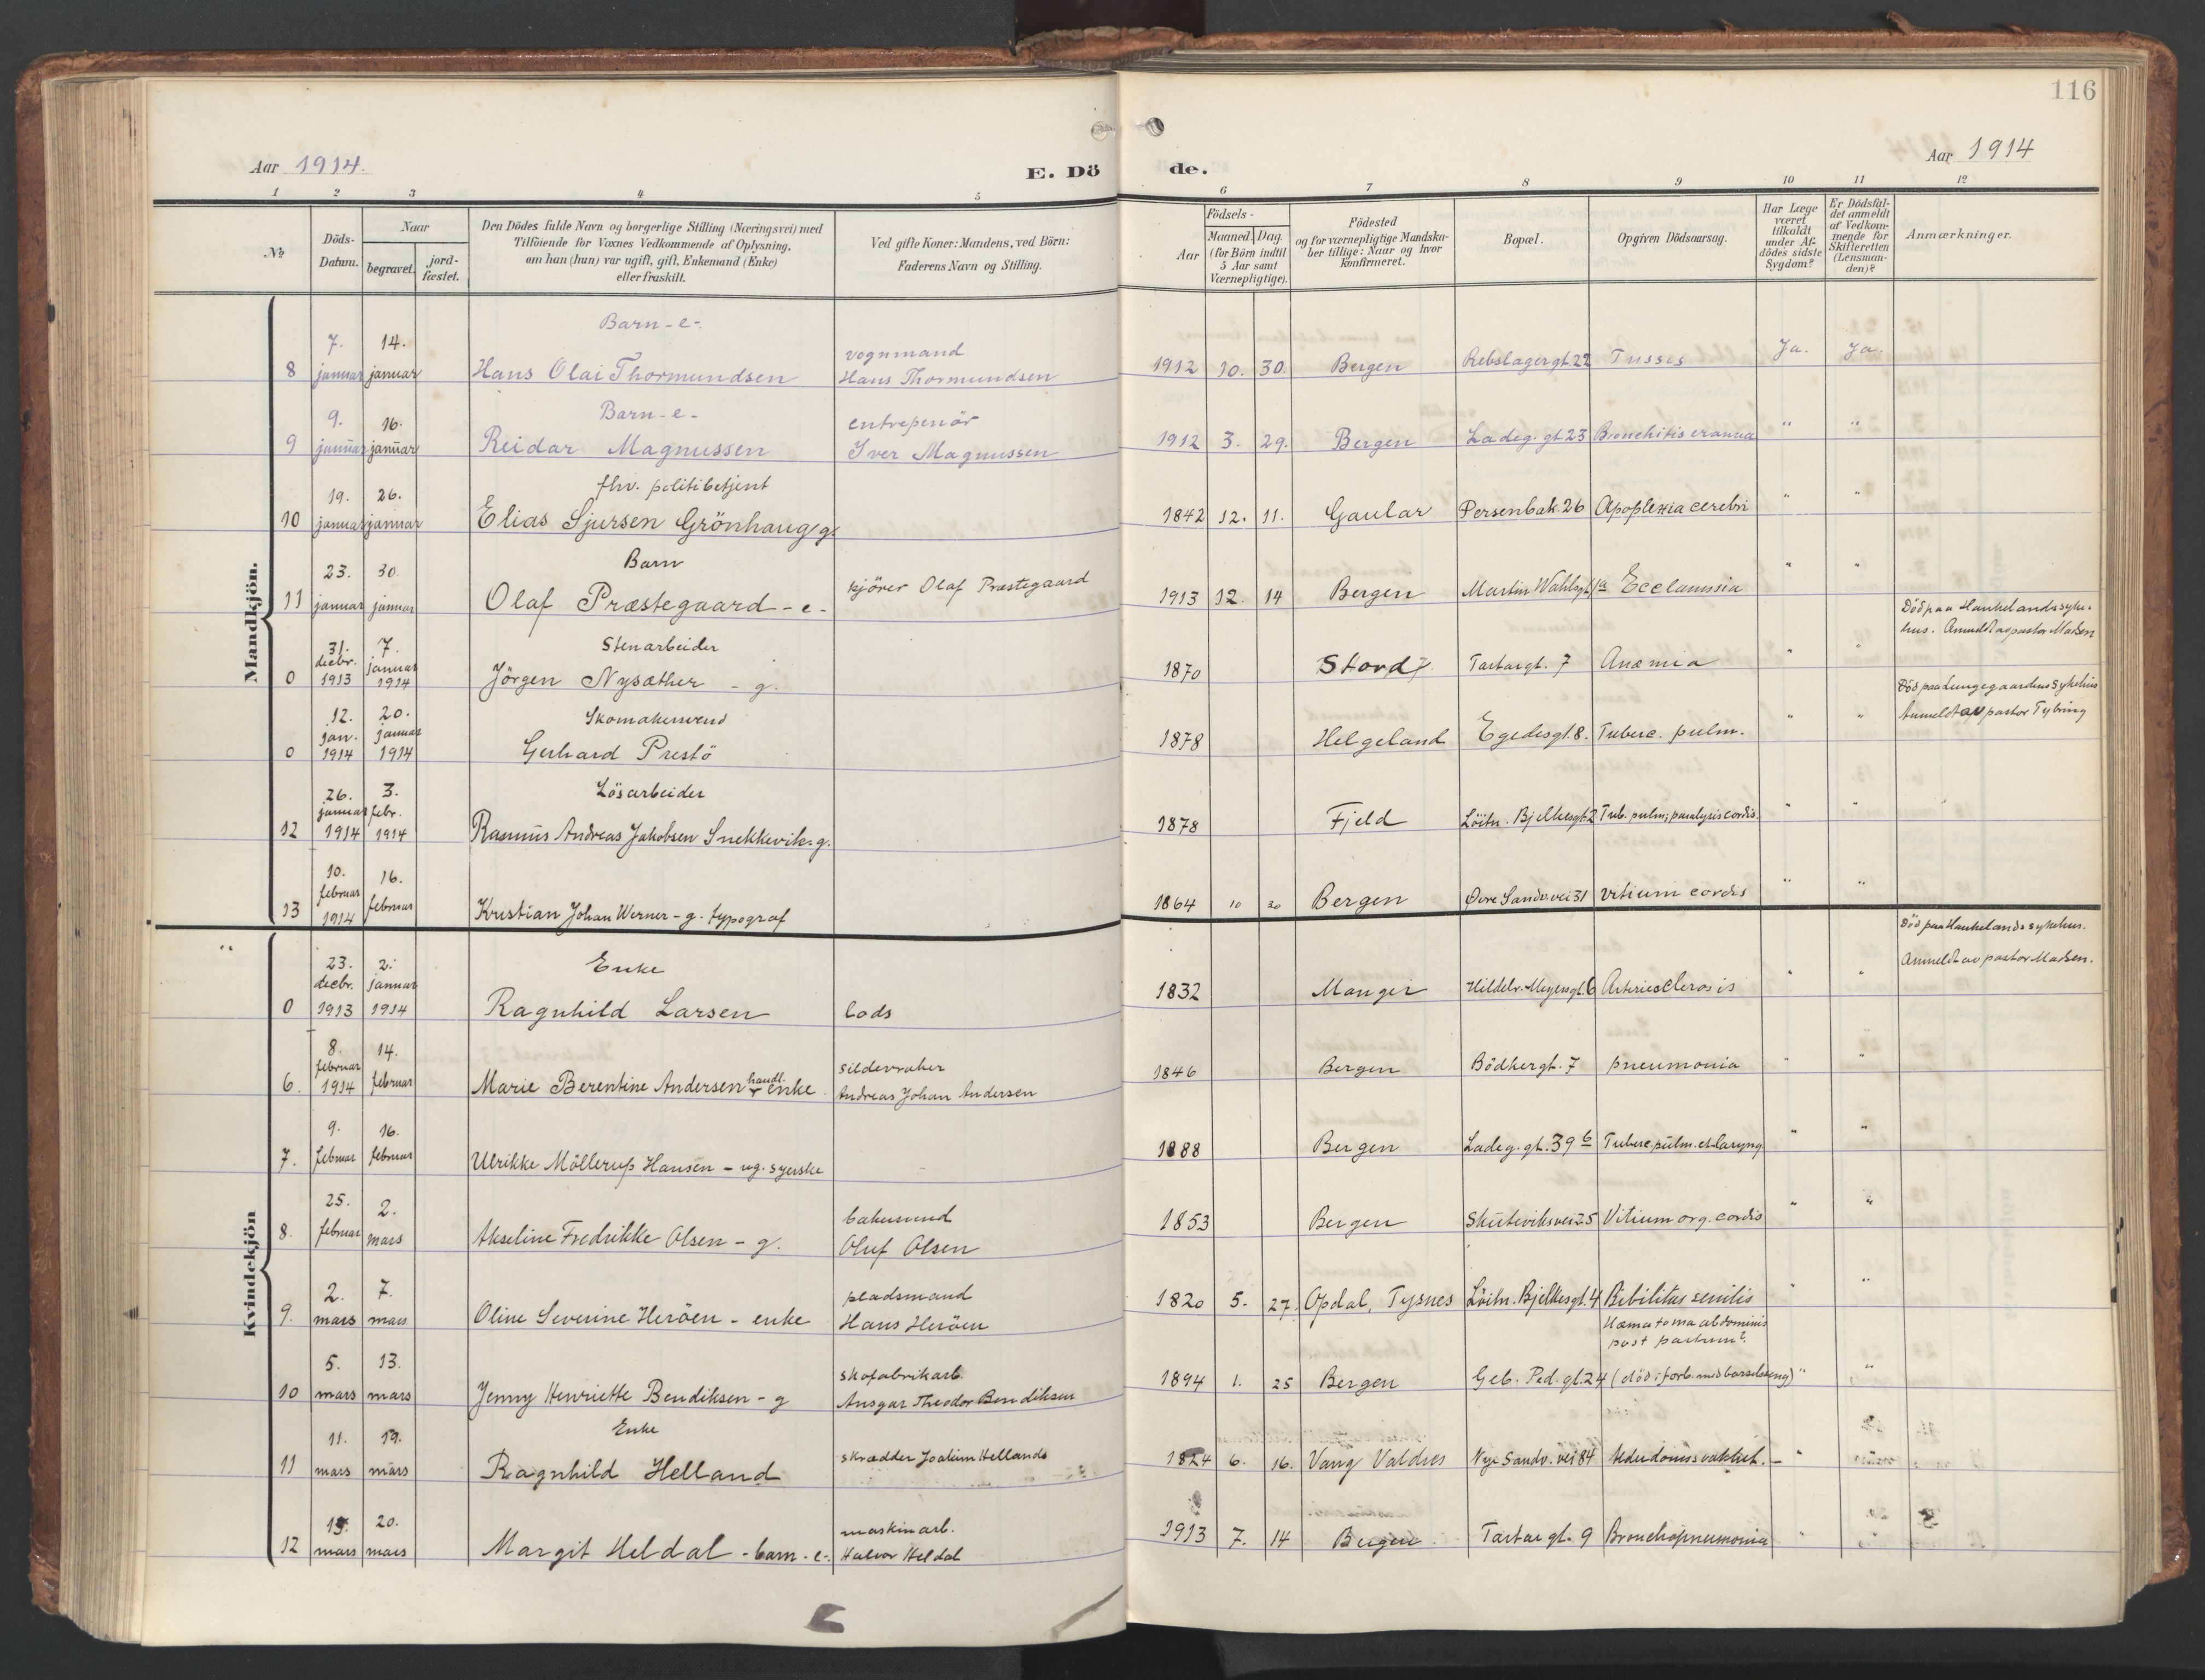 116
Aar 1914.
E. Dö
de.
Aar 1914
1 2 3 4 5 6 7 8 9 10 11 12
№
Döds-Datum.
Naar
begravet.
jord-fæstet.
Den Dödes fulde Navn og borgerlige Stilling (Næringsvei) med
Tilföiende for Voxnes Vedkommende af Oplysning,
om han (hun) var ugift, gift, Enkemand (Enke)
eller fraskilt.
Ved gifte Koner: Mandens, ved Börn:
Faderens Navn og Stilling.
Födsels-
Aar
Maaned. Dag.
(for Börn indtil
5 Aar samt
Værnepligtige).
Födested
og for værnepligtige Mandska-
ber tillige: Naar og hvor
konfirmeret.
Bopæl.
Opgiven Dödsaarsag.
Har Læge
været
tilkaldt
under Af-
dödes sidste
Sygdom?
Er Dödsfal-
det anmeldt
af Vedkom-
mende for
Skifteretten
(Lensman-
den)?
Anmærkninger.
Mandkjön.
Barn - e -.
8 7. januar 14. januar Hans Olai Thormundsen vognmand Hans Thormundsen 1912 10. 30. Bergen Rebslagergt. 22 Tussis Ja. Ja.
Barn - e -
9 9. januar 16. januar Reidar Magnussen entrepenör Iver Magnussen 1912 3. 29. Bergen Ladeg. gt. 23 Bronchitis " "
fhv. politibetjent
10 19. januar 26. januar Elias Sjursen Grönhaug g. 1842 12. 11. Gaular Persenbak. 26 Apoplexia cerebri " "
Barn
11 23. januar 30. januar Olaf Præstegaard - e - kjörer Olaf Præstegaard 1913 12. 14 Bergen Martin Wahlsgt. 1a Ecclamsia " "
Stenarbeider
0 31. decbr. 1913 7. januar 1914 Jörgen Nysæther - g. 1870 Stord Tartargt. 7 Anæmia " " Död paa Haukelands syke-
hus. Anmeldt av pastor Madsen
Skomakersvend
0 12. jan. 1914 20. januar 1914 Gerhard Prestö 1878 Helgeland Egedesgt. 8. Tuberc. pulm. " " Död paa Lungegaardens Sykehus
Anmeldt av pastor Tybring
Lösarbeider
12 26. januar 1914 3. febr. 1914 Rasmus Andreas Jakobsen Snekkevik - g. 1878 Fjeld Löitn. Bjelkesgt. 2 Tub. pulm; paralysis cordis. " "
13 10. februar 1914 16. februar Kristian Johan Werner - g. typograf 1864 10 20 Bergen Övre Sandv. vei 31 Vitium cordis " "
Kvindekjön
Enke
0 23. decbr. 1913 2. januar 1914 Ragnhild Larsen lods 1832 Manger Hildebr. Meyersgt. 6 Arteriesclerosis " " Död paa Haukelands sykehus.
Anmeldt av pastor Madsen.
6. 8. februar 1914 14. februar Marie Berentine Andersen handl. enke sildevraker Andreas Johan Andersen 1846 Bergen Bödkergt. 7 pneumonia " "
7. 9. februar 16. februar Ulrikke Möllerup Hansen - ug. syerske 1888 Bergen Ladeg. gt. 39 b Tuberc. pulm. et laryng " "
8. 25. februar 2. mars Akseline Fredrikke Olsen - g. bakersvend Oluf Olsen 1853 Bergen Skuteviksvei 25 Vitium org. cordis " "
9. 2. mars 7. mars Oline Severine Heröen - enke pladsmand Hans Heröen 1820 5. 27. Opdal, Tysnes Löitn. Bjelkesgt. 4 Debilitas senilis " "
10 5. mars 13. mars Jenny Henriette Bendiksen - g skofabrikarb. Ansgar Theodor Bendiksen 1894 1. 25 Bergen Geb. Ped. gt. 24 Hæmatoma abdominis
post partum?
(död i forb. med barselseng) " "
Enke
11 11. mars 19. mars Ragnhild Helland skrædder Joakim Hellands 1824 6. 16. Vang Valdres Nye Sandv. vei 84 Alderdomssvakhet. - "
12 15. mars 20. mars Margit Heldal - barn - e -. maskinarb. Halvor Heldal 1913 7. 14 Bergen Tartargt. 9 Bronchopneumonia "